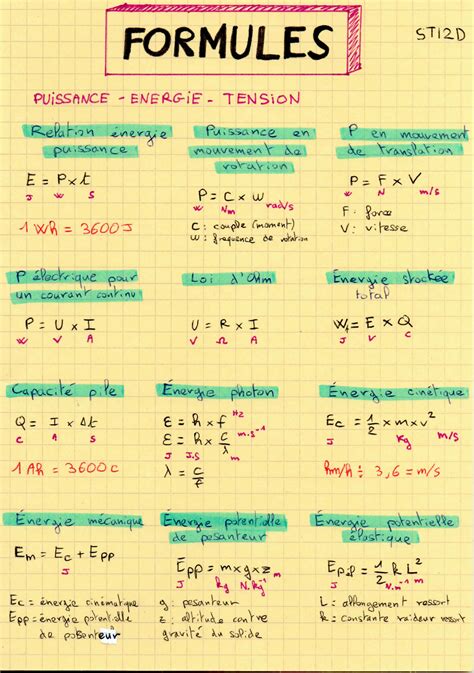 FORMULES
STI2D
PUISSANCE - ENERGIE - TENSION
Relation énergie puissance
E = P x t
W W S
1 Wh = 3600 J
Puissance en mouvement de rotation
P = C x w
W Nm rad/s
C : couple (moment)
w : frequence de rotation
P en mouvement de translation
P = F x V
W N m/s
F : force
V : vitesse
P électrique pour un courant continu
P = U x I
W V A
Loi d'Ohm
U = R x I
V Ω A
Énergie stockée total
Wt = E x Q
J V C
Capacité pile
Q = I x Δt
C A S
1 Ah = 3600 C
Énergie photon
E = h x f Hz
E = h x c/λ m.s⁻¹
J J.S m
λ = c/f
Énergie cinétique
Ec = 1/2 x m x v²
J Kg m/s
Km/h ÷ 3,6 = m/s
Énergie mécanique
Em = Ec + Epp
J
Ec = énergie cinématique
Epp = énergie potentielle de pesanteur
Énergie potentielle de pesanteur
Epp = m x g x z m
J kg N.kg⁻¹
g : pesanteur
z : altitude contre gravité du solide
Énergie potentielle élastique
Epel = 1/2 k L²
J N.m⁻¹ m
L : allongement ressort
k : constante raideur ressort